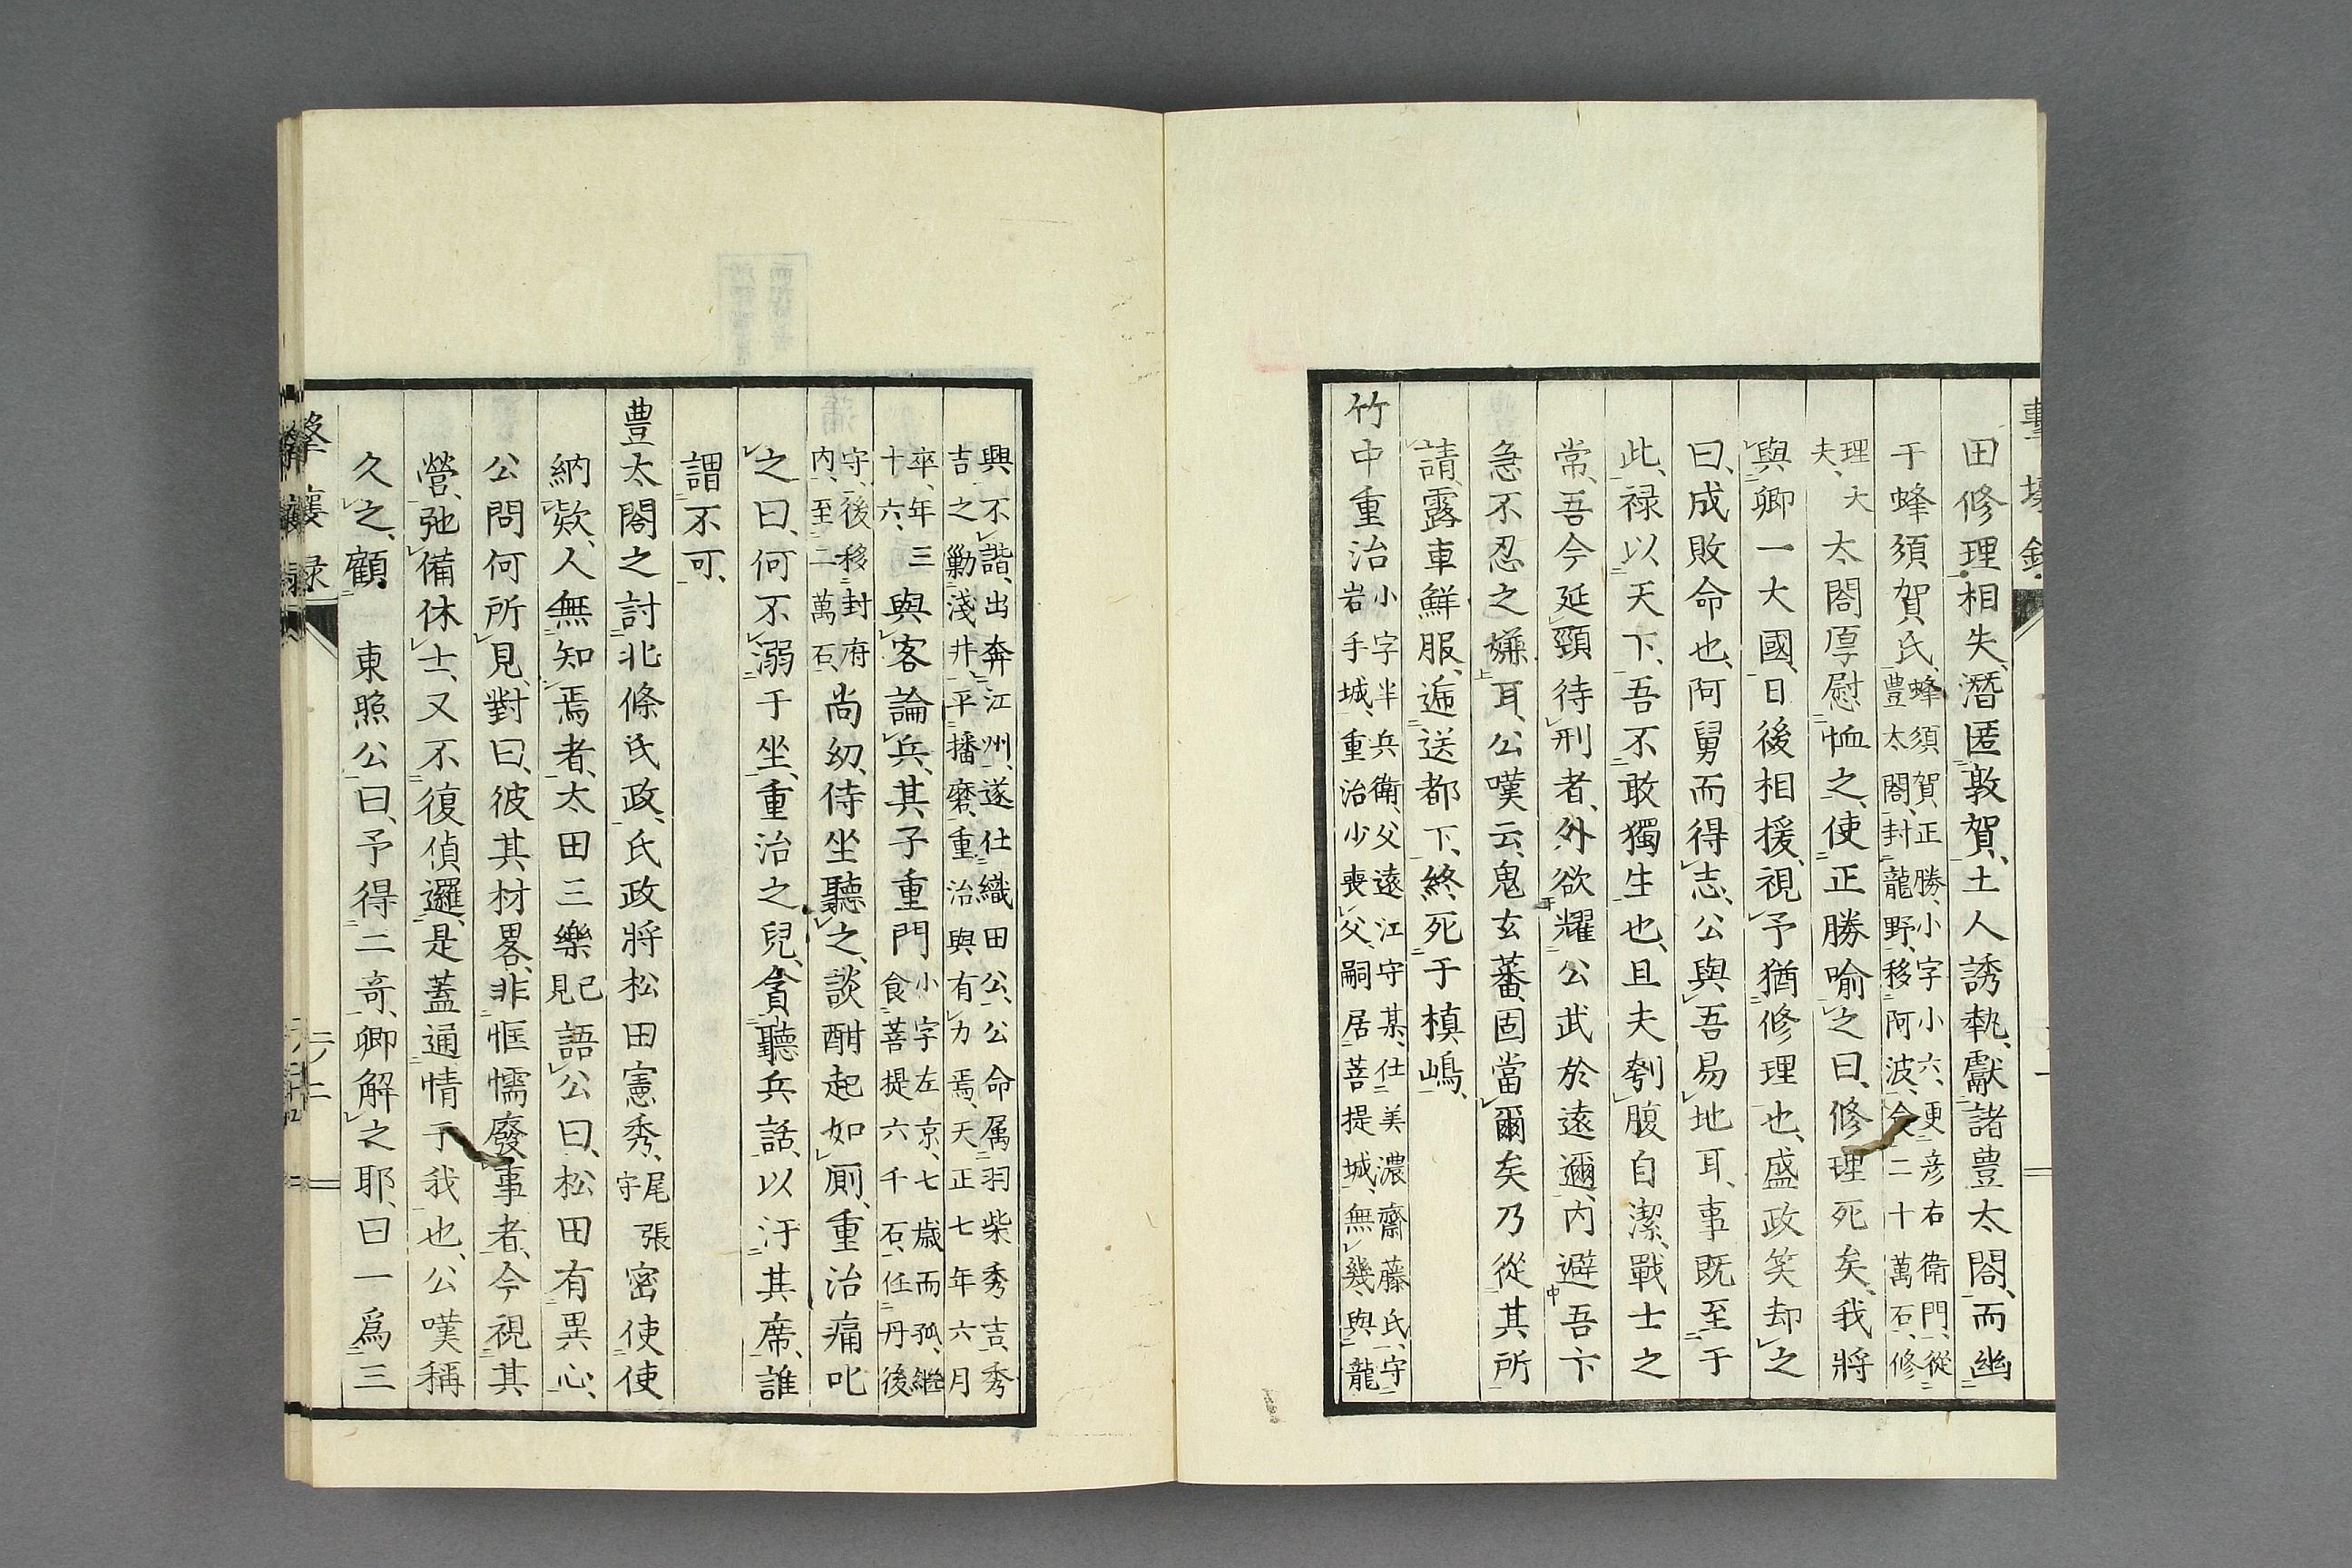 田修理相失、潛匿敦賀、土人誘執、獻諸豊太閤、而幽
于蜂須賀氏、蜂須賀正勝、小字小六、更彦右衛門、從豊太閤、封龍野、移阿波、食二十萬石、修
理大夫、太閤厚慰恤之、使正勝喻之曰、修理死矣、我將
與卿一大國、日後相援、視予猶修理也、盛政笑却之
曰、成敗命也、阿舅而得志、公與吾易地耳、事既至于
此、禄以天下、吾不敢獨生也、且夫刳腹自潔、戰士之
常、吾今延頸待刑者、外欲耀公武於遠邇、内避吾卞
急不忍之嫌耳、公嘆云、鬼玄蕃、固當爾矣乃從其所
請、露車鮮服、遍送都下、終死于槙嶋、
竹中重治小字半兵衛、父遠江守某、仕美濃齋藤氏、守岩手城、重治少喪父、嗣居菩提城、無幾、與龍
興不諧、出奔江州、遂仕織田公、公命属羽柴秀吉、秀吉之勦淺井、平播磨、重治與有力焉、天正七年六月
卒、年三十六、與客論兵、其子重門小字左京、七歳而孤、繼食菩提六千石、任丹後
守、後移封府内、至二萬石、尚幼、侍坐聽之、談酣起如厠、重治痛叱
之曰、何不溺于坐、重治之兒、貪聽兵話、以汙其席、誰
謂不可、
豊太閤之討北條氏政、氏政將松田憲秀、尾張守密使使
納欵、人無知焉者、太田三樂見已語公曰、松田有異心、
公問何所見、對曰、彼其材畧、非恇懦廢事者、今視其
營、弛備休士、又不復偵邏、是蓋通情于我也、公嘆稱
久之、顧東照公曰、予得二竒、卿解之耶、曰一爲三